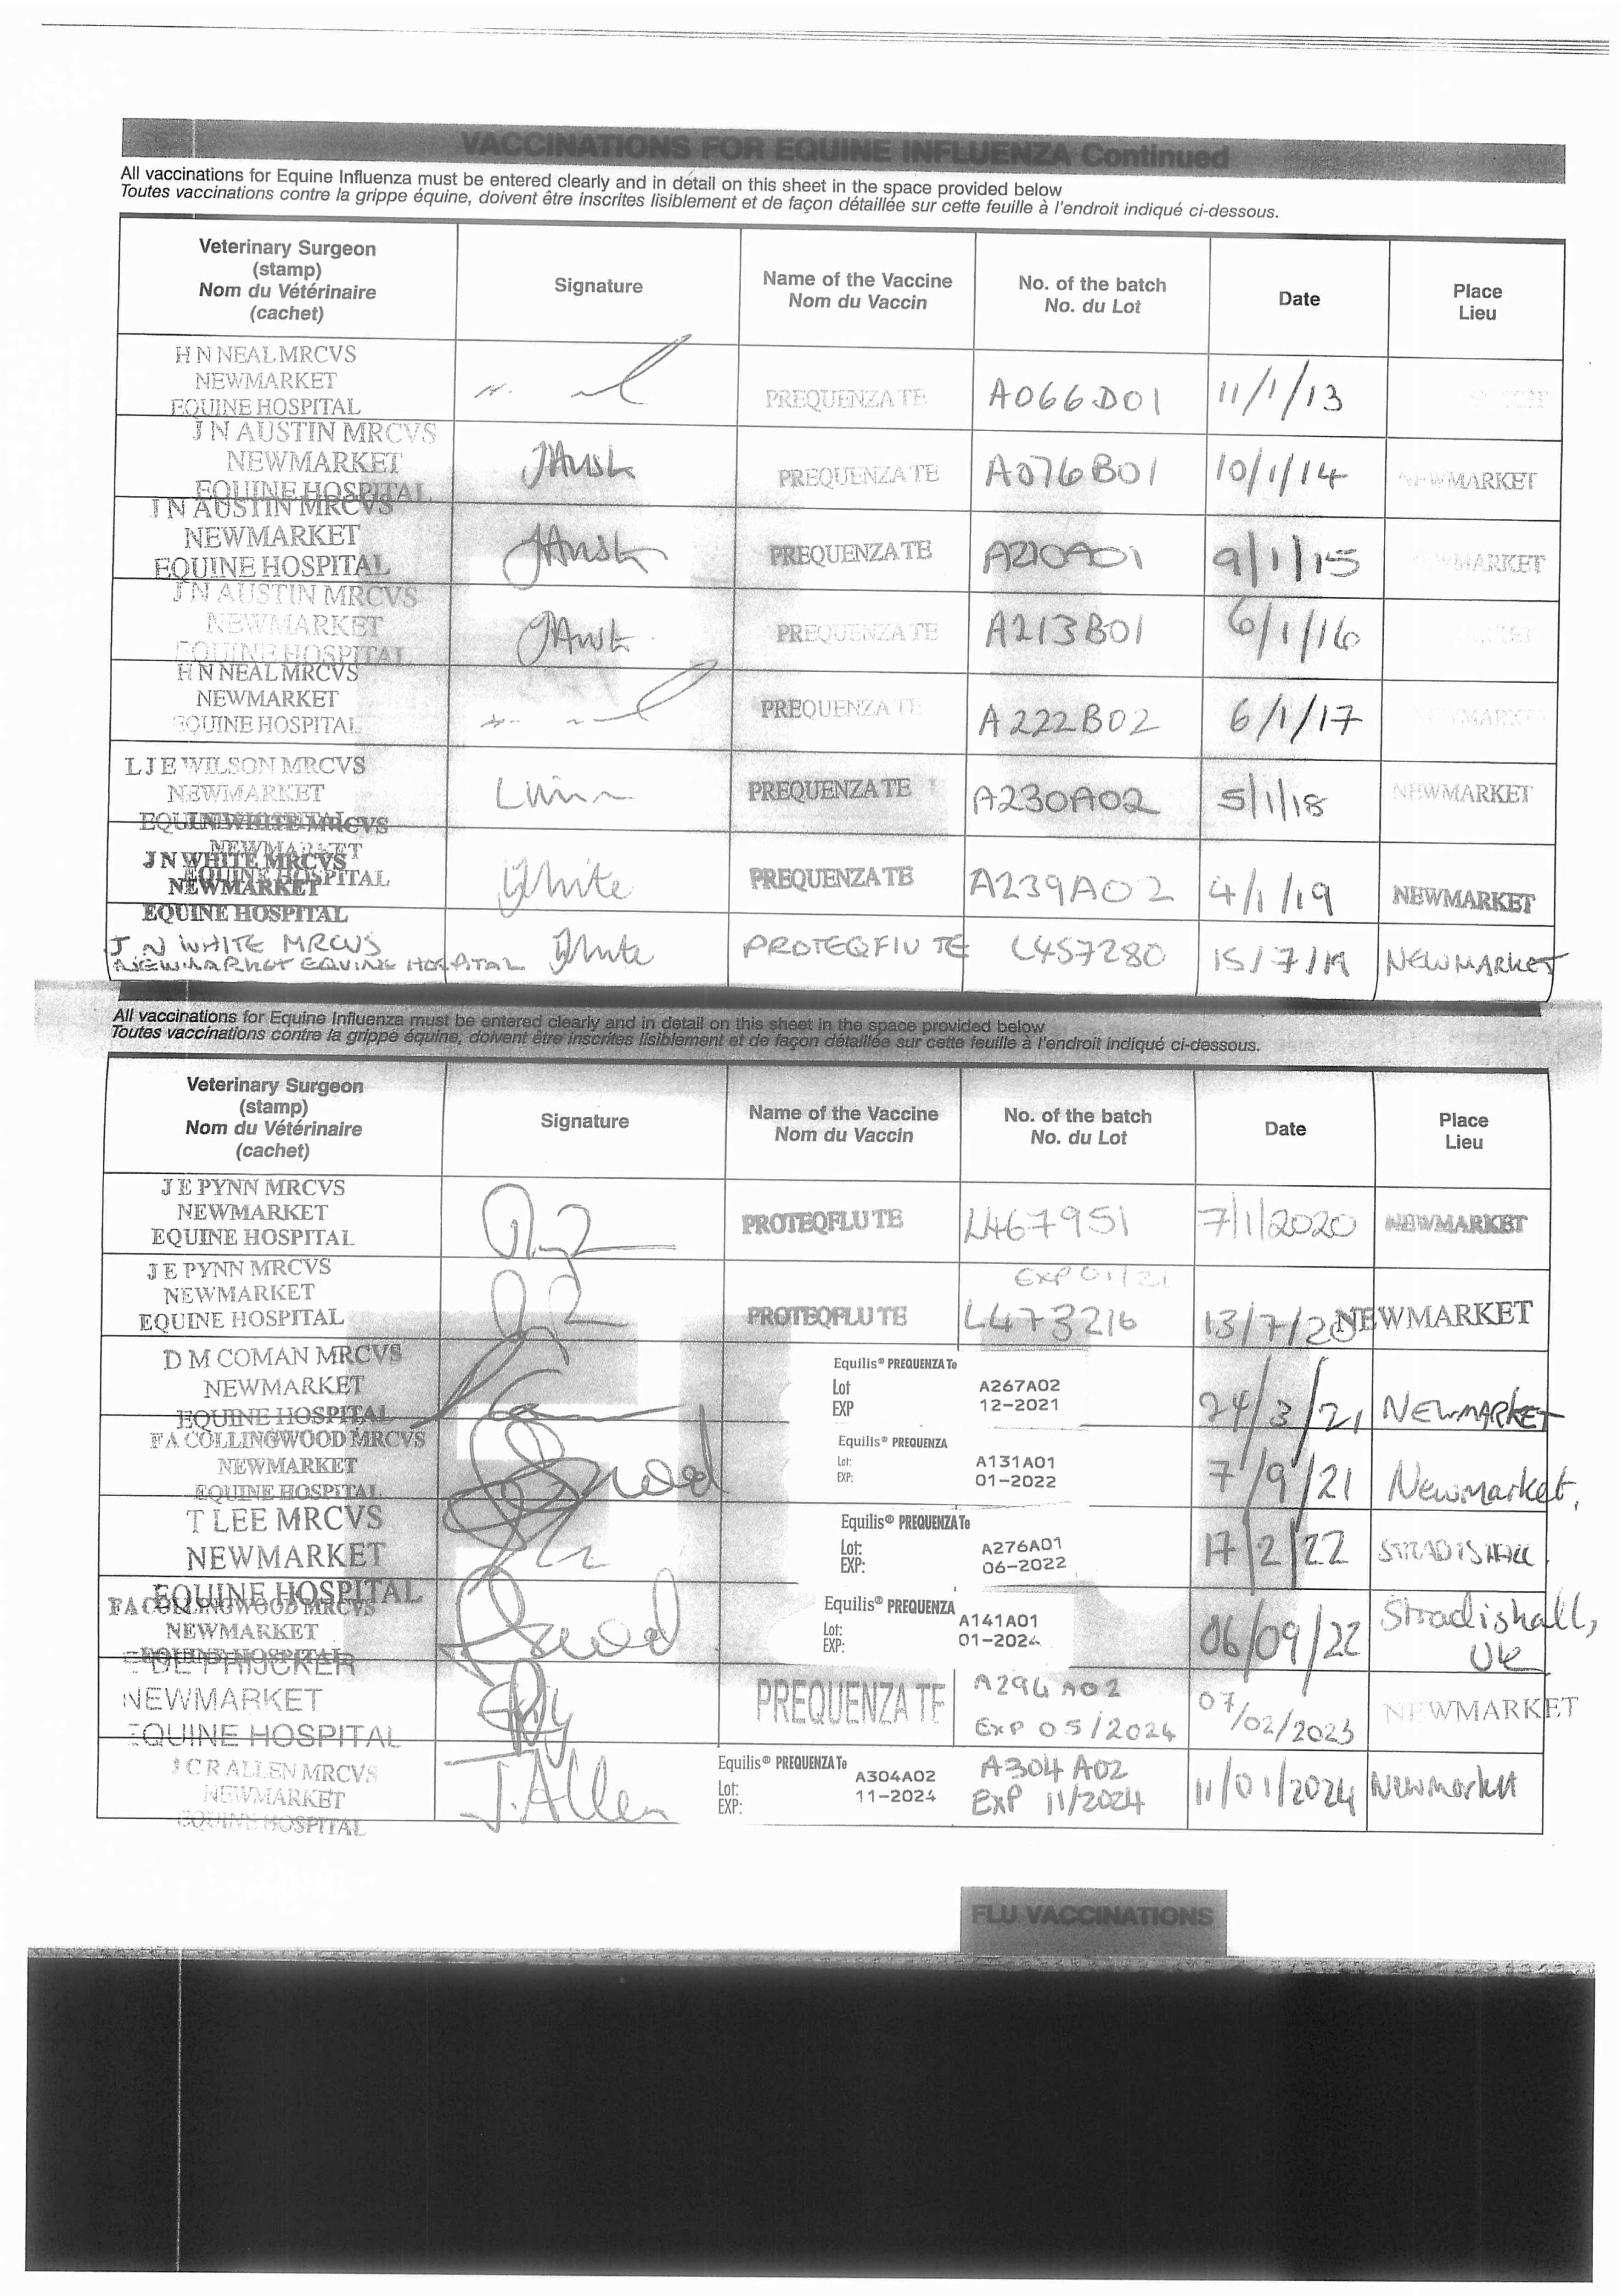 VACCINATIONS FOR EQUINE INFLUENZA Continued
All vaccinations for Equine Influenza must be entered clearly and in detail on this sheet in the space provided below
Toutes vaccinations contre la grippe équine, doivent être inscrites lisiblement et de façon détaillée sur cette feuille à l'endroit indiqué ci-dessous.
Veterinary Surgeon
(stamp)
Nom du Vétérinaire
(cachet)
Signature
Name of the Vaccine
Nom du Vaccin
No. of the batch
No. du Lot
Date
Place
Lieu
H N NEAL MRCVS
NEWMARKET
EQUINE HOSPITAL
PREQUENZA TE
A066D01
11/1/13
J N AUSTIN MRCVS
NEWMARKET
EQUINE HOSPITAL
PREQUENZA TE
A076B01
10/1/14
NEWMARKET
J N AUSTIN MRCVS
NEWMARKET
EQUINE HOSPITAL
PREQUENZA TE
A210A01
9/1/15
MARKET
J N AUSTIN MRCVS
NEWMARKET
EQUINE HOSPITAL
PREQUENZA TE
A213B01
6/1/16
H N NEAL MRCVS
NEWMARKET
EQUINE HOSPITAL
PREQUENZA TE
A222B02
6/1/17
L J E WILSON MRCVS
NEWMARKET
PREQUENZA TE
A230A02
5/1/18
NEWMARKET
J N WHITE MRCVS
NEWMARKET
EQUINE HOSPITAL
White
PREQUENZA TE
A239A02
4/1/19
NEWMARKET
J N WHITE MRCVS
NEWMARKET EQUINE HOSPITAL
White
PROTEQFLU TE
L457280
15/7/19
NEWMARKET
All vaccinations for Equine Influenza must be entered clearly and in detail on this sheet in the space provided below
Toutes vaccinations contre la grippe équine, doivent être inscrites lisiblement et de façon détaillée sur cette feuille à l'endroit indiqué ci-dessous.
Veterinary Surgeon
(stamp)
Nom du Vétérinaire
(cachet)
Signature
Name of the Vaccine
Nom du Vaccin
No. of the batch
No. du Lot
Date
Place
Lieu
J E PYNN MRCVS
NEWMARKET
EQUINE HOSPITAL
PROTEQFLU TE
L467951
7/1/2020
NEWMARKET
J E PYNN MRCVS
NEWMARKET
EQUINE HOSPITAL
PROTEQFLU TE
EXP 01/21
L473216
13/7/20
NEWMARKET
D M COMAN MRCVS
NEWMARKET
EQUINE HOSPITAL
Equilis® PREQUENZA Te
Lot A267A02
EXP 12-2021
24/3/21
NEWMARKET
F A COLLINGWOOD MRCVS
NEWMARKET
EQUINE HOSPITAL
Equilis® PREQUENZA
Lot: A131A01
EXP: 01-2022
7/9/21
Newmarket,
T LEE MRCVS
NEWMARKET
EQUINE HOSPITAL
Equilis® PREQUENZA Te
Lot: A276A01
EXP: 06-2022
17/2/22
STRADISHALL
F A COLLINGWOOD MRCVS
NEWMARKET
EQUINE HOSPITAL
Equilis® PREQUENZA
Lot: A141A01
EXP: 01-2024
06/09/22
Stradishall,
UK
NEWMARKET
EQUINE HOSPITAL
PREQUENZA TE
A294A02
EXP 05/2024
07/02/2023
NEWMARKET
J C R ALLEN MRCVS
NEWMARKET
EQUINE HOSPITAL
J. Allen
Equilis® PREQUENZA Te
Lot: A304A02
EXP: 11-2024
A304 A02
EXP 11/2024
11/01/2024
Newmarket
FLU VACCINATIONS